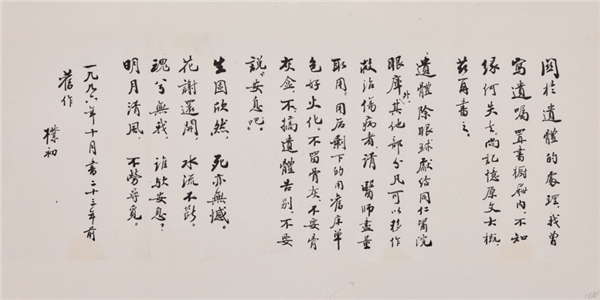 關於遺體的處理,我曾
寫遺囑,置書櫥屜内,不知
緣何失去,尚記憶原文大概,
茲再書之。
遺體除眼球獻給同仁醫院
眼庫外,其他部分凡可以移作
救治傷病者,請醫師盡量
取用,用后剩下的用舊床單
包好火化,不留骨灰,不要骨
灰盒,不搞遺體告别,不要
說“安息吧”。
生固欣然,死亦無憾。
花謝還開,水流不斷。
魂兮無我,誰歟安息?
明月清風,不勞尋覓。
一九九六年十月書二十三年前
舊作 樸初